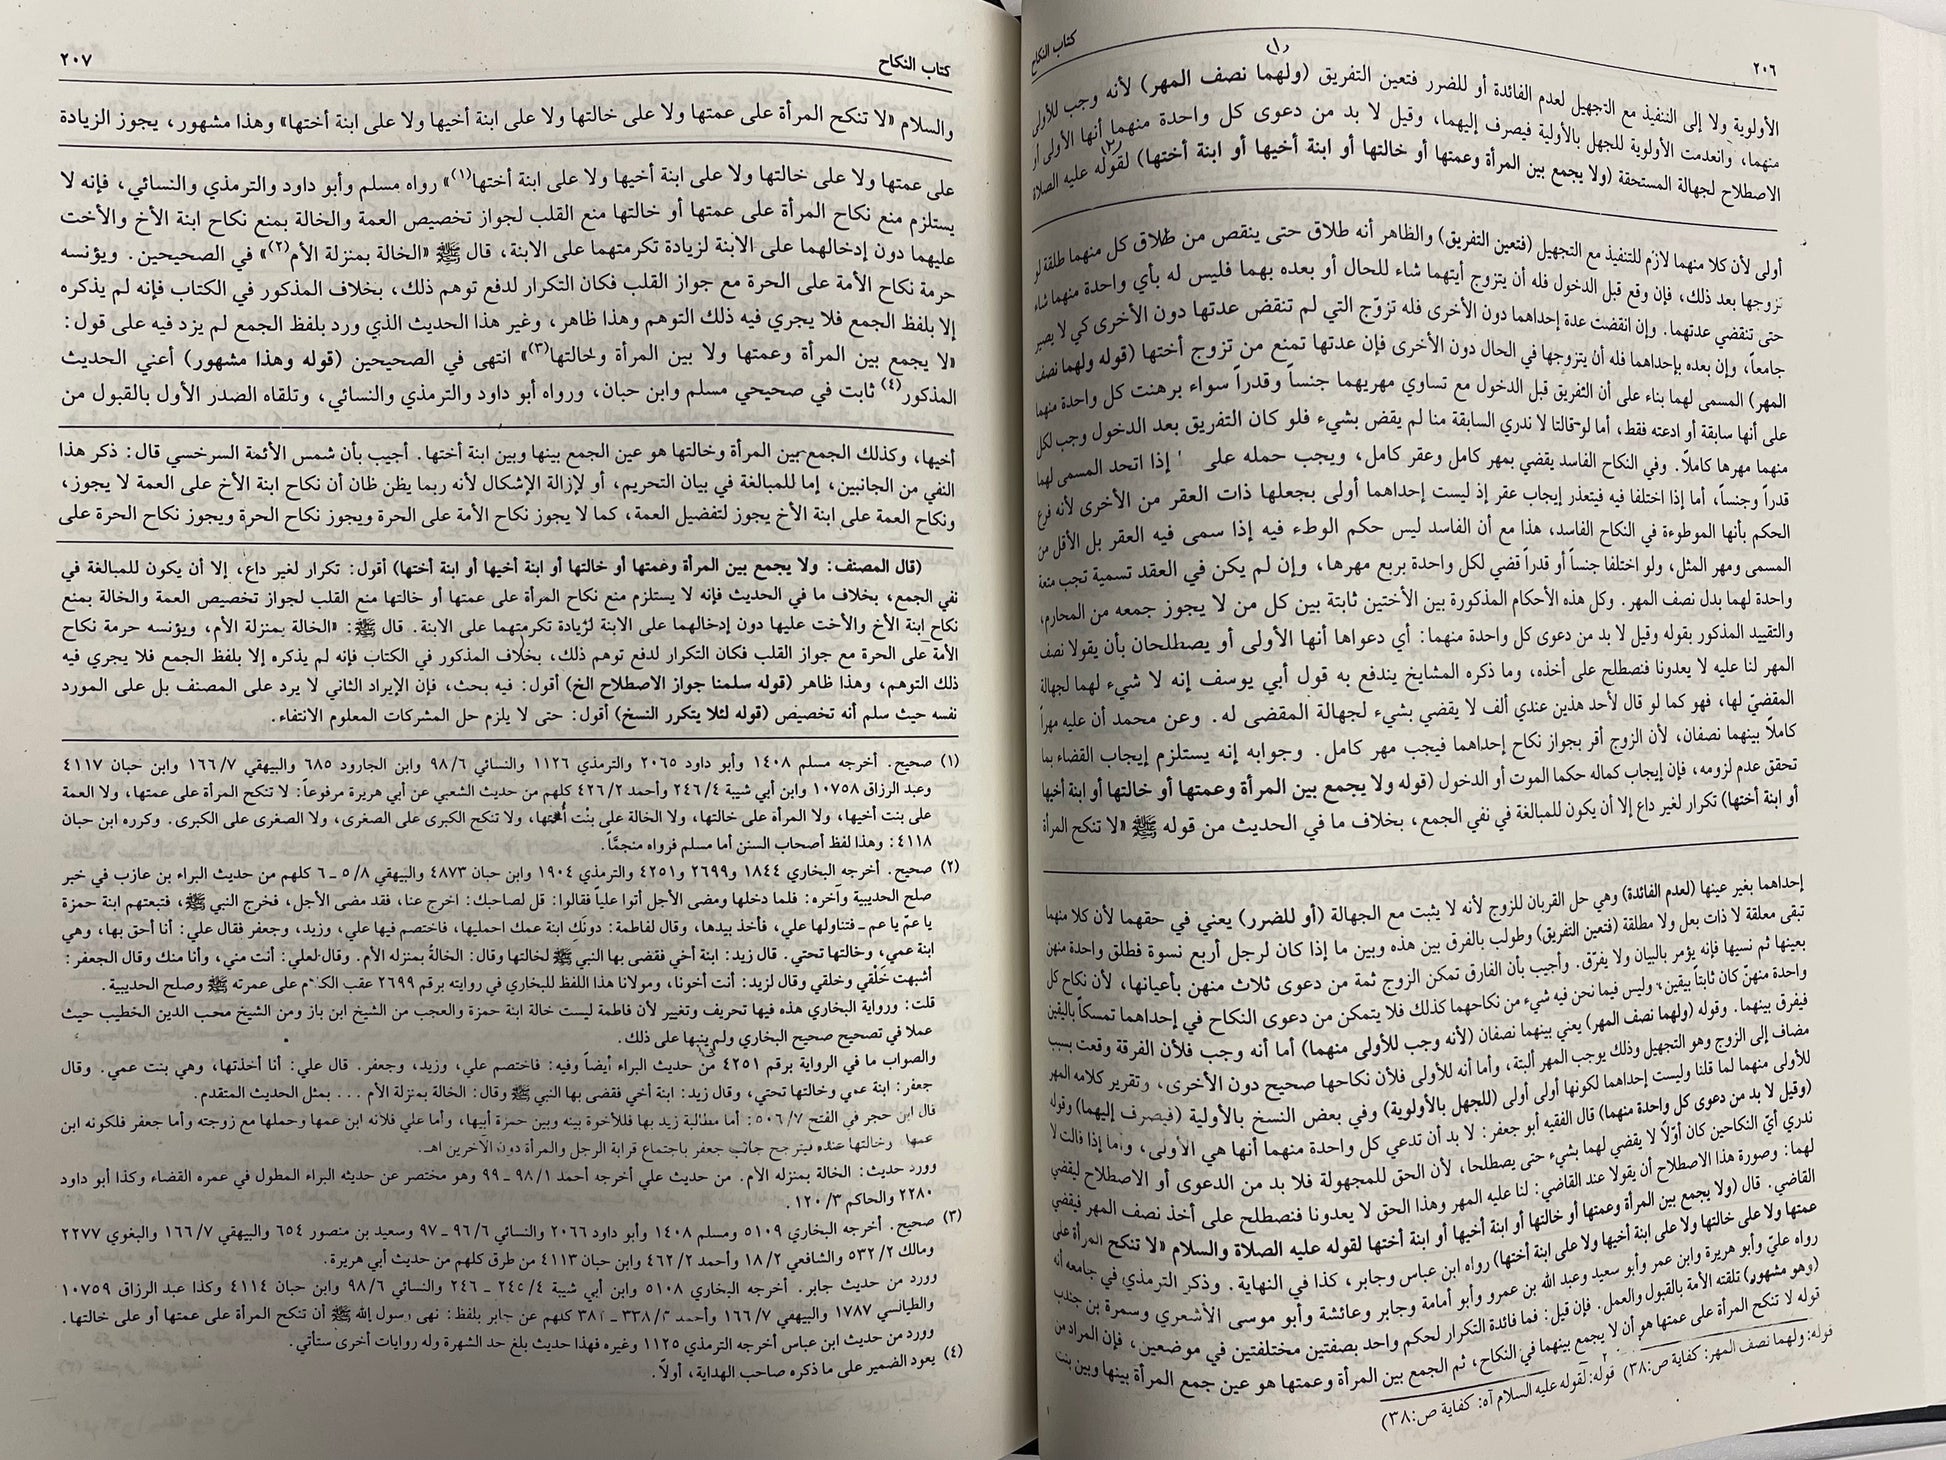 ٢٠٦
كتاب النكاح
(١)
الأولوية ولا إلى التنفيذ مع التجهيل لعدم الفائدة أو للضرر فتعين التفريق (ولهما نصف المهر) لأنه وجب للأولى
منهما، وانعدمت الأولوية للجهل بالأولية فيصرف إليهما، وقيل لا بد من دعوى كل واحدة منهما أنها الأولى أو
الاصطلاح لجهالة المستحقة (ولا يجمع بين المرأة وعمتها أو خالتها أو ابنة أخيها أو ابنة أختها) لقوله عليه الصلاة
أولى لأن كلا منهما لازم للتنفيذ مع التجهيل (فتعين التفريق) والظاهر أنه طلاق حتى ينقص من طلاق كل منهما طلقة لو
تزوجها بعد ذلك، فإن وقع قبل الدخول فله أن يتزوج أيتهما شاء للحال أو بعده بهما فليس له بأي واحدة منهما شاء
حتى تنقضي عدتهما. وإن انقضت عدة إحداهما دون الأخرى فله تزوّج التي لم تنقض عدتها دون الأخرى كي لا يصير
جامعاً، وإن بعده بإحداهما فله أن يتزوجها في الحال دون الأخرى فإن عدتها تمنع من تزوج أختها (قوله ولهما نصف
المهر) المسمى لهما بناء على أن التفريق قبل الدخول مع تساوي مهريهما جنساً وقدراً سواء برهنت كل واحدة منهما
على أنها سابقة أو ادعته فقط، أما لو قالتا لا ندري السابقة منا لم يقض بشيء فلو كان التفريق بعد الدخول وجب لكل
منهما مهرها كاملاً. وفي النكاح الفاسد يقضي بمهر كامل وعقر كامل، ويجب حمله على إذا اتحد المسمى لهما
قدراً وجنساً، أما إذا اختلفا فيه فيتعذر إيجاب عقر إذ ليست إحداهما أولى بجعلها ذات العقر من الأخرى لأنه فرع
الحكم بأنها الموطوءة في النكاح الفاسد، هذا مع أن الفاسد ليس حكم الوطء فيه إذا سمى فيه العقر بل الأقل من
المسمى ومهر المثل، ولو اختلفا جنساً أو قدراً قضي لكل واحدة بربع مهرها، وإن لم يكن في العقد تسمية تجب متعة
واحدة لهما بدل نصف المهر. وكل هذه الأحكام المذكورة بين الأختين ثابتة بين كل من لا يجوز جمعه من المحارم،
والتقييد المذكور بقوله وقيل لا بد من دعوى كل واحدة منهما: أي دعواها أنها الأولى أو يصطلحان بأن يقولا نصف
المهر لنا عليه لا يعدونا فنصطلح على أخذه، وما ذكره المشايخ يندفع به قول أبي يوسف إنه لا شيء لهما لجهالة
المقضيّ لها، فهو كما لو قال لأحد هذين عندي ألف لا يقضي بشيء لجهالة المقضى له. وعن محمد أن عليه مهراً
كاملاً بينهما نصفان، لأن الزوج أقر بجواز نكاح إحداهما فيجب مهر كامل. وجوابه إنه يستلزم إيجاب القضاء بما
تحقق عدم لزومه، فإن إيجاب كماله حكما الموت أو الدخول (قوله ولا يجمع بين المرأة وعمتها أو خالتها أو ابنة أخيها
أو ابنة أختها) تكرار لغير داع إلا أن يكون للمبالغة في نفي الجمع، بخلاف ما في الحديث من قوله ﷺ «لا تنكح المرأة
إحداهما بغير عينها (لعدم الفائدة) وهي حل القربان للزوج لأنه لا يثبت مع الجهالة (أو للضرر) يعني في حقهما لأن كلا منهما
تبقى معلقة لا ذات بعل ولا مطلقة (فتعين التفريق) وطولب بالفرق بين هذه وبين ما إذا كان لرجل أربع نسوة فطلق واحدة منهن
بعينها ثم نسيها فإنه يؤمر بالبيان ولا يفرّق. وأجيب بأن الفارق تمكن الزوج ثمة من دعوى ثلاث منهن بأعيانها، لأن نكاح كل
واحدة منهنّ كان ثابتاً بيقين، وليس فيما نحن فيه شيء من نكاحهما كذلك فلا يتمكن من دعوى النكاح في إحداهما تمسكاً باليقين
فيفرق بينهما. وقوله (ولهما نصف المهر) يعني بينهما نصفان (لأنه وجب للأولى منهما) أما أنه وجب فلأن الفرقة وقعت بسبب
مضاف إلى الزوج وهو التجهيل وذلك يوجب المهر ألبتة، وأما أنه للأولى فلأن نكاحها صحيح دون الأخرى، وتقرير كلامه المهر
للأولى منهما لما قلنا وليست إحداهما لكونها أولى أولى (للجهل بالأولوية) وفي بعض النسخ بالأولية (فيصرف إليهما) وقوله
(وقيل لا بد من دعوى كل واحدة منهما) قال الفقيه أبو جعفر: لا بد أن تدعي كل واحدة منهما أنها هي الأولى، وأما إذا قالت لا
ندري أيّ النكاحين كان أوّلاً لا يقضي لهما بشيء حتى يصطلحا، لأن الحق للمجهولة فلا بد من الدعوى أو الاصطلاح ليقضي
لهما: وصورة هذا الاصطلاح أن يقولا عند القاضي: لنا عليه المهر وهذا الحق لا يعدونا فنصطلح على أخذ نصف المهر فيقضي
القاضي. قال (ولا يجمع بين المرأة وعمتها أو خالتها أو ابنة أخيها أو ابنة أختها لقوله عليه الصلاة والسلام «لا تنكح المرأة على
عمتها ولا على خالتها ولا على ابنة أخيها ولا على ابنة أختها) رواه ابن عباس وجابر، كذا في النهاية. وذكر الترمذي في جامعه أنه
رواه عليّ وأبو هريرة وابن عمر وأبو سعيد وعبد الله بن عمرو وأبو أمامة وجابر وعائشة وأبو موسى الأشعري وسمرة بن جندب
(وهو مشهور) تلقته الأمة بالقبول والعمل. فإن قيل: فما فائدة التكرار لحكم واحد بصفتين مختلفتين في موضعين، فإن المراد من
قوله لا تنكح المرأة على عمتها هو أن لا يجمع بينهما في النكاح، ثم الجمع بين المرأة وعمتها هو عين جمع المرأة بينها وبين بنت
قوله: ولهما نصف المهر: كفاية ص:٣٨) قوله: لقوله عليه السلام آه: كفاية ص:٣٨)
كتاب النكاح
٢٠٧
والسلام «لا تنكح المرأة على عمتها ولا على خالتها ولا على ابنة أخيها ولا على ابنة أختها» وهذا مشهور، يجوز الزيادة
على عمتها ولا على خالتها ولا على ابنة أخيها ولا على ابنة أختها(١)» رواه مسلم وأبو داود والترمذي والنسائي، فإنه لا
يستلزم منع نكاح المرأة على عمتها أو خالتها منع القلب لجواز تخصيص العمة والخالة بمنع نكاح ابنة الأخ والأخت
عليهما دون إدخالهما على الابنة لزيادة تكرمتهما على الابنة، قال ﷺ «الخالة بمنزلة الأم(٢)» في الصحيحين. ويؤنسه
حرمة نكاح الأمة على الحرة مع جواز القلب فكان التكرار لدفع توهم ذلك، بخلاف المذكور في الكتاب فإنه لم يذكره
إلا بلفظ الجمع فلا يجري فيه ذلك التوهم وهذا ظاهر، وغير هذا الحديث الذي ورد بلفظ الجمع لم يزد فيه على قول:
«لا يجمع بين المرأة وعمتها ولا بين المرأة وخالتها(٣)» انتهى في الصحيحين (قوله وهذا مشهور) أعني الحديث
المذكور(٤) ثابت في صحيحي مسلم وابن حبان، ورواه أبو داود والترمذي والنسائي، وتلقاه الصدر الأول بالقبول من
أخيها، وكذلك الجمع بين المرأة وخالتها هو عين الجمع بينها وبين ابنة أختها. أجيب بأن شمس الأئمة السرخسي قال: ذكر هذا
النفي من الجانبين، إما للمبالغة في بيان التحريم، أو لإزالة الإشكال لأنه ربما يظن ظان أن نكاح ابنة الأخ على العمة لا يجوز،
ونكاح العمة على ابنة الأخ يجوز لتفضيل العمة، كما لا يجوز نكاح الأمة على الحرة ويجوز نكاح الحرة ويجوز نكاح الحرة على
(قال المصنف: ولا يجمع بين المرأة وعمتها أو خالتها أو ابنة أخيها أو ابنة أختها) أقول: تكرار لغير داع، إلا أن يكون للمبالغة في
نفي الجمع، بخلاف ما في الحديث فإنه لا يستلزم منع نكاح المرأة على عمتها أو خالتها منع القلب لجواز تخصيص العمة والخالة بمنع
نكاح ابنة الأخ والأخت عليها دون إدخالهما على الابنة لزيادة تكرمتهما على الابنة. قال ﷺ: «الخالة بمنزلة الأم، ويؤنسه حرمة نكاح
الأمة على الحرة مع جواز القلب فكان التكرار لدفع توهم ذلك، بخلاف المذكور في الكتاب فإنه لم يذكره إلا بلفظ الجمع فلا يجري فيه
ذلك التوهم، وهذا ظاهر (قوله سلمنا جواز الاصطلاح الخ) أقول: فيه بحث، فإن الإيراد الثاني لا يرد على المصنف بل على المورد
نفسه حيث سلم أنه تخصيص (قوله لئلا يتكرر النسخ) أقول: حتى لا يلزم حل المشركات المعلوم الانتفاء.
(١) صحيح. أخرجه مسلم ١٤٠٨ وأبو داود ٢٠٦٥ والترمذي ١١٢٦ والنسائي ٩٨/٦ وابن الجارود ٦٨٥ والبيهقي ١٦٦/٧ وابن حبان ٤١١٧
وعبد الرزاق ١٠٧٥٨ وابن أبي شيبة ٢٤٦/٤ وأحمد ٤٢٦/٢ كلهم من حديث الشعبي عن أبي هريرة مرفوعاً: لا تنكح المرأة على عمتها، ولا العمة
على بنت أخيها، ولا المرأة على خالتها، ولا الخالة على بنت أختها، ولا تنكح الكبرى على الصغرى، ولا الصغرى على الكبرى. وكرره ابن حبان
٤١١٨: وهذا لفظ أصحاب السنن أما مسلم فرواه منجمًّا.
(٢) صحيح. أخرجه البخاري ١٨٤٤ و٢٦٩٩ و٤٢٥١ والترمذي ١٩٠٤ وابن حبان ٤٨٧٣ والبيهقي ٥/٨ ـ ٦ كلهم من حديث البراء بن عازب في خبر
صلح الحديبية وآخره: فلما دخلها ومضى الأجل أتوا علياً فقالوا: قل لصاحبك: اخرج عنا، فقد مضى الأجل، فخرج النبي ﷺ، فتبعتهم ابنة حمزة
يا عمّ يا عم ـ فتناولها علي، فأخذ بيدها، وقال لفاطمة: دونَكِ ابنة عمك احمليها، فاختصم فيها علي، وزيد، وجعفر فقال علي: أنا أحق بها، وهي
ابنة عمي، وخالتها تحتي. قال زيد: ابنة أخي فقضى بها النبي ﷺ لخالتها وقال: الخالةُ بمنزله الأم. وقال لعلي: أنت مني، وأنا منك وقال الجعفر:
أشبهت خَلْقي وخلقي وقال لزيد: أنت أخونا، ومولانا هذا اللفظ للبخاري في روايته برقم ٢٦٩٩ عقب الكلام على عمرته ﷺ وصلح الحديبية.
قلت: ورواية البخاري هذه فيها تحريف وتغيير لأن فاطمة ليست خالة ابنة حمزة والعجب من الشيخ ابن باز ومن الشيخ محب الدين الخطيب حيث
عملا في تصحيح صحيح البخاري ولم ينبها على ذلك.
والصواب ما في الرواية برقم ٤٢٥١ من حديث البراء أيضاً وفيه: فاختصم علي، وزيد، وجعفر. قال علي: أنا أخذتها، وهي بنت عمي. وقال
جعفر: ابنة عمي وخالتها تحتي، وقال زيد: ابنة أخي فقضى بها النبي ﷺ وقال: الخالة بمنزله الأم . . . بمثل الحديث المتقدم.
قال ابن حجر في الفتح ٥٠٦/٧: أما مطالبة زيد بها فللأخوة بينه وبين حمزة أبيها، وأما علي فلانه ابن عمها وحملها مع زوجته وأما جعفر فلكونه ابن
عمها وخالتها عنده فيترجح جانب جعفر باجتماع قرابة الرجل والمرأة دون الآخرين اهـ.
وورد حديث: الخالة بمنزله الأم. من حديث علي أخرجه أحمد ٩٨/١ ـ ٩٩ وهو مختصر عن حديثه البراء المطول في عمره القضاء وكذا أبو داود
٢٢٨٠ والحاكم ١٢٠/٣.
(٣) صحيح. أخرجه البخاري ٥١٠٩ ومسلم ١٤٠٨ وأبو داود ٢٠٦٦ والنسائي ٩٦/٦ ـ ٩٧ وسعيد بن منصور ٦٥٤ والبيهقي ١٦٦/٧ والبغوي ٢٢٧٧
ومالك ٥٣٢/٢ والشافعي ١٨/٢ وأحمد ٤٦٢/٢ وابن حبان ٤١١٣ من طرق كلهم من حديث أبي هريرة.
وورد من حديث جابر. أخرجه البخاري ٥١٠٨ وابن أبي شيبة ٢٤٥/٤ ـ ٢٤٦ والنسائي ٩٨/٦ وابن حبان ٤١١٤ وكذا عبد الرزاق ١٠٧٥٩
والطيالسي ١٧٨٧ والبيهقي ١٦٦/٧ وأحمد ٣٣٨/٣ ـ ٣٨٢ كلهم عن جابر بلفظ: نهى رسول الله ﷺ أن تنكح المرأة على عمتها أو على خالتها.
وورد من حديث ابن عباس أخرجه الترمذي ١١٢٥ وغيره فهذا حديث بلغ حد الشهرة وله روايات أخرى ستأتي.
(٤) يعود الضمير على ما ذكره صاحب الهداية، أولاً.